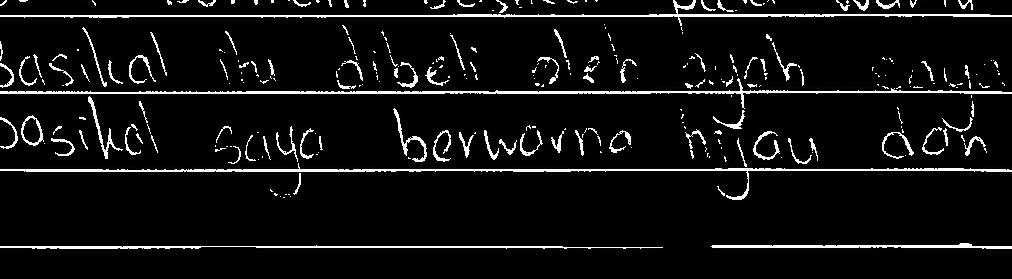 bermain basikal pada waktu
Basikal itu dibeli oleh ayah saya
basikal saya berwarna hijau dan